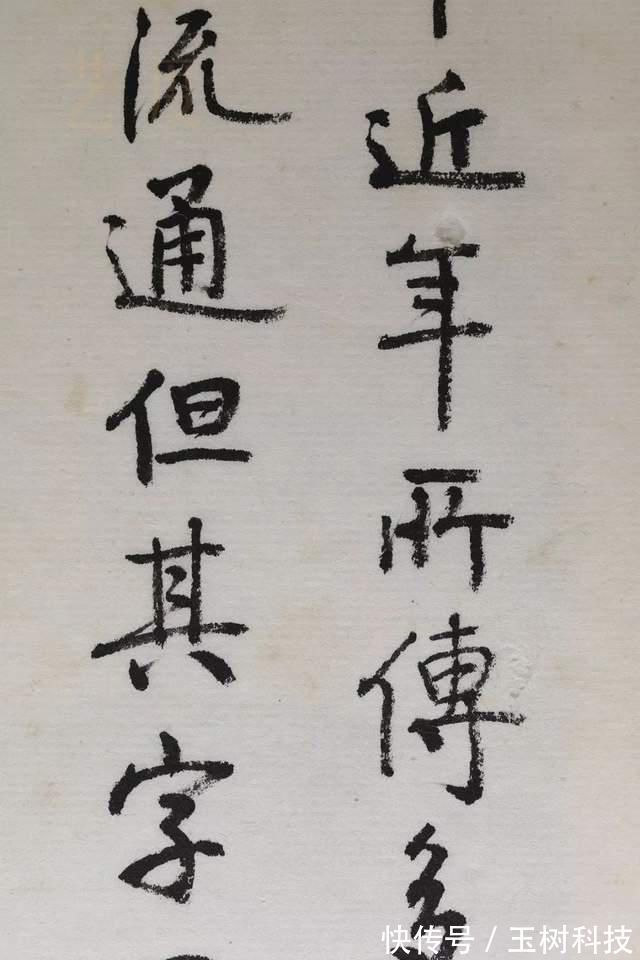 近年所傳多
流通但其字
快传号／玉树科技